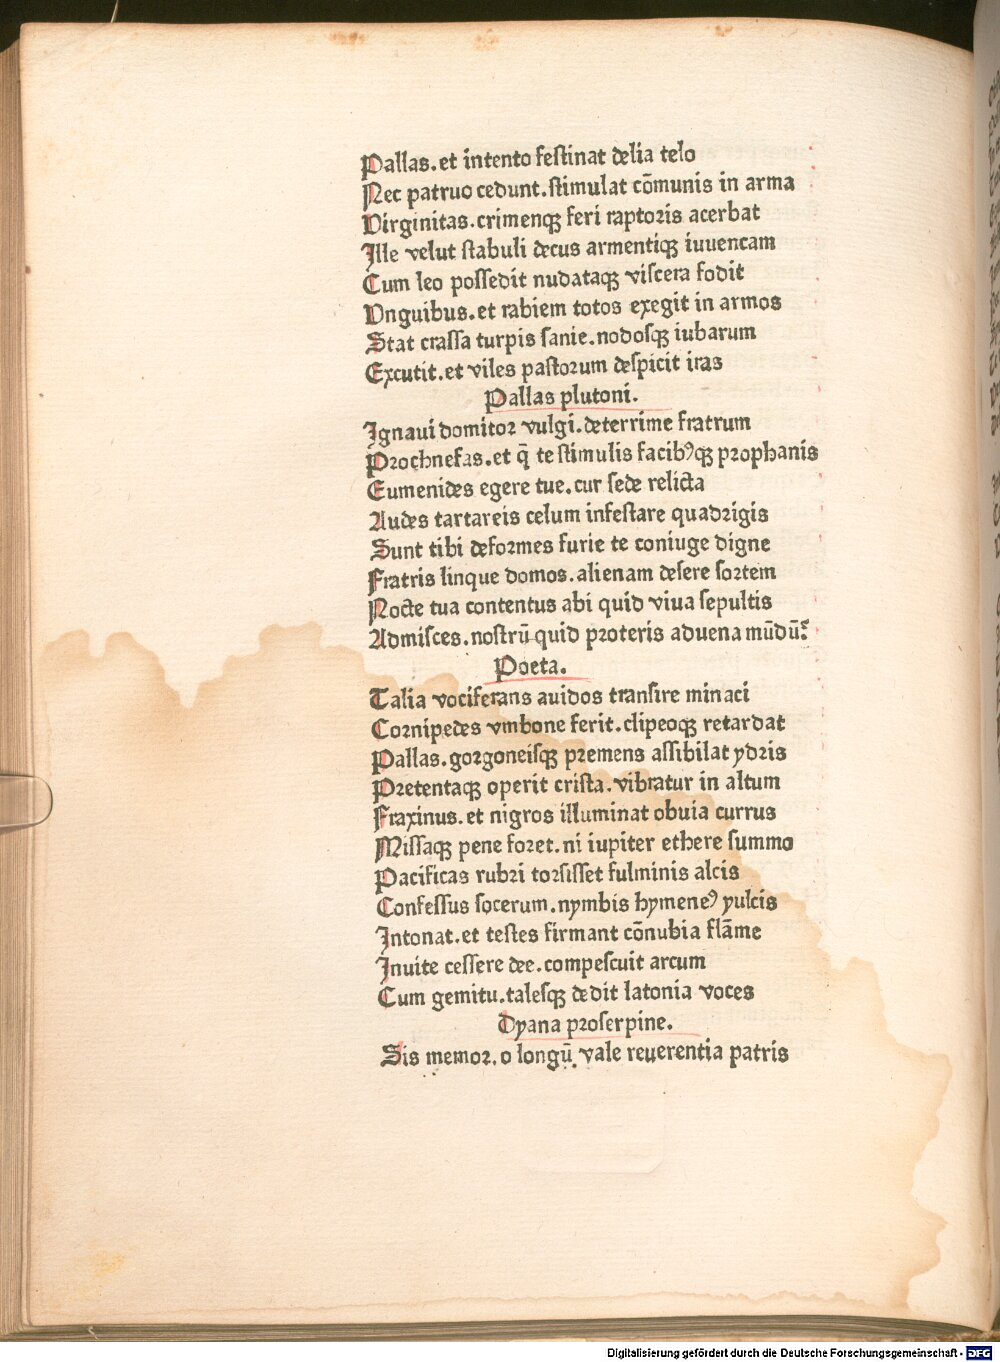 Pallas. et intento festinat delia telo
Nec patruo cedunt. stimulat cōmunis in arma
Virginitas. crimenqꝫ feri raptoris acerbat
Ille velut stabuli decus armentiqꝫ iuuencam
Cum leo possedit nudataqꝫ viscera fodit
Vnguibus. et rabiem totos exegit in armos
Stat crassa turpis sanie. nodosqꝫ iubarum
Excutit. et viles pastorum despicit iras
Pallas plutoni.
Ignaui domitor vulgi. deterrime fratrum
Prochnefas. et q̄ te stimulis facibꝰqꝫ prophanis
Eumenides egere tue. cur sede relicta
Audes tartareis celum infestare quadrigis
Sunt tibi deformes furie te coniuge digne
Fratris linque domos. alienam desere sortem
Nocte tua contentus abi quid viua sepultis
Admisces. nostrū quid proteris aduena mūdū?
Poeta.
Talia vociferans auidos transire minaci
Cornipedes vmbone ferit. clipeoqꝫ retardat
Pallas. gorgoneisqꝫ premens assibilat ydris
Pretentaqꝫ operit crista. vibratur in altum
Fraxinus. et nigros illuminat obuia currus
Missaqꝫ pene foret. ni iupiter ethere summo
Pacificas rubri torsisset fulminis alcis
Confessus socerum. nymbis hymeneꝰ yulcis
Intonat. et testes firmant cōnubia flāme
Inuite cessere dee. compescuit arcum
Cum gemitu. talesqꝫ dedit latonia voces
Dyana proserpine.
Sis memor. o longū vale reuerentia patris
Digitalisierung gefördert durch die Deutsche Forschungsgemeinschaft - DFG